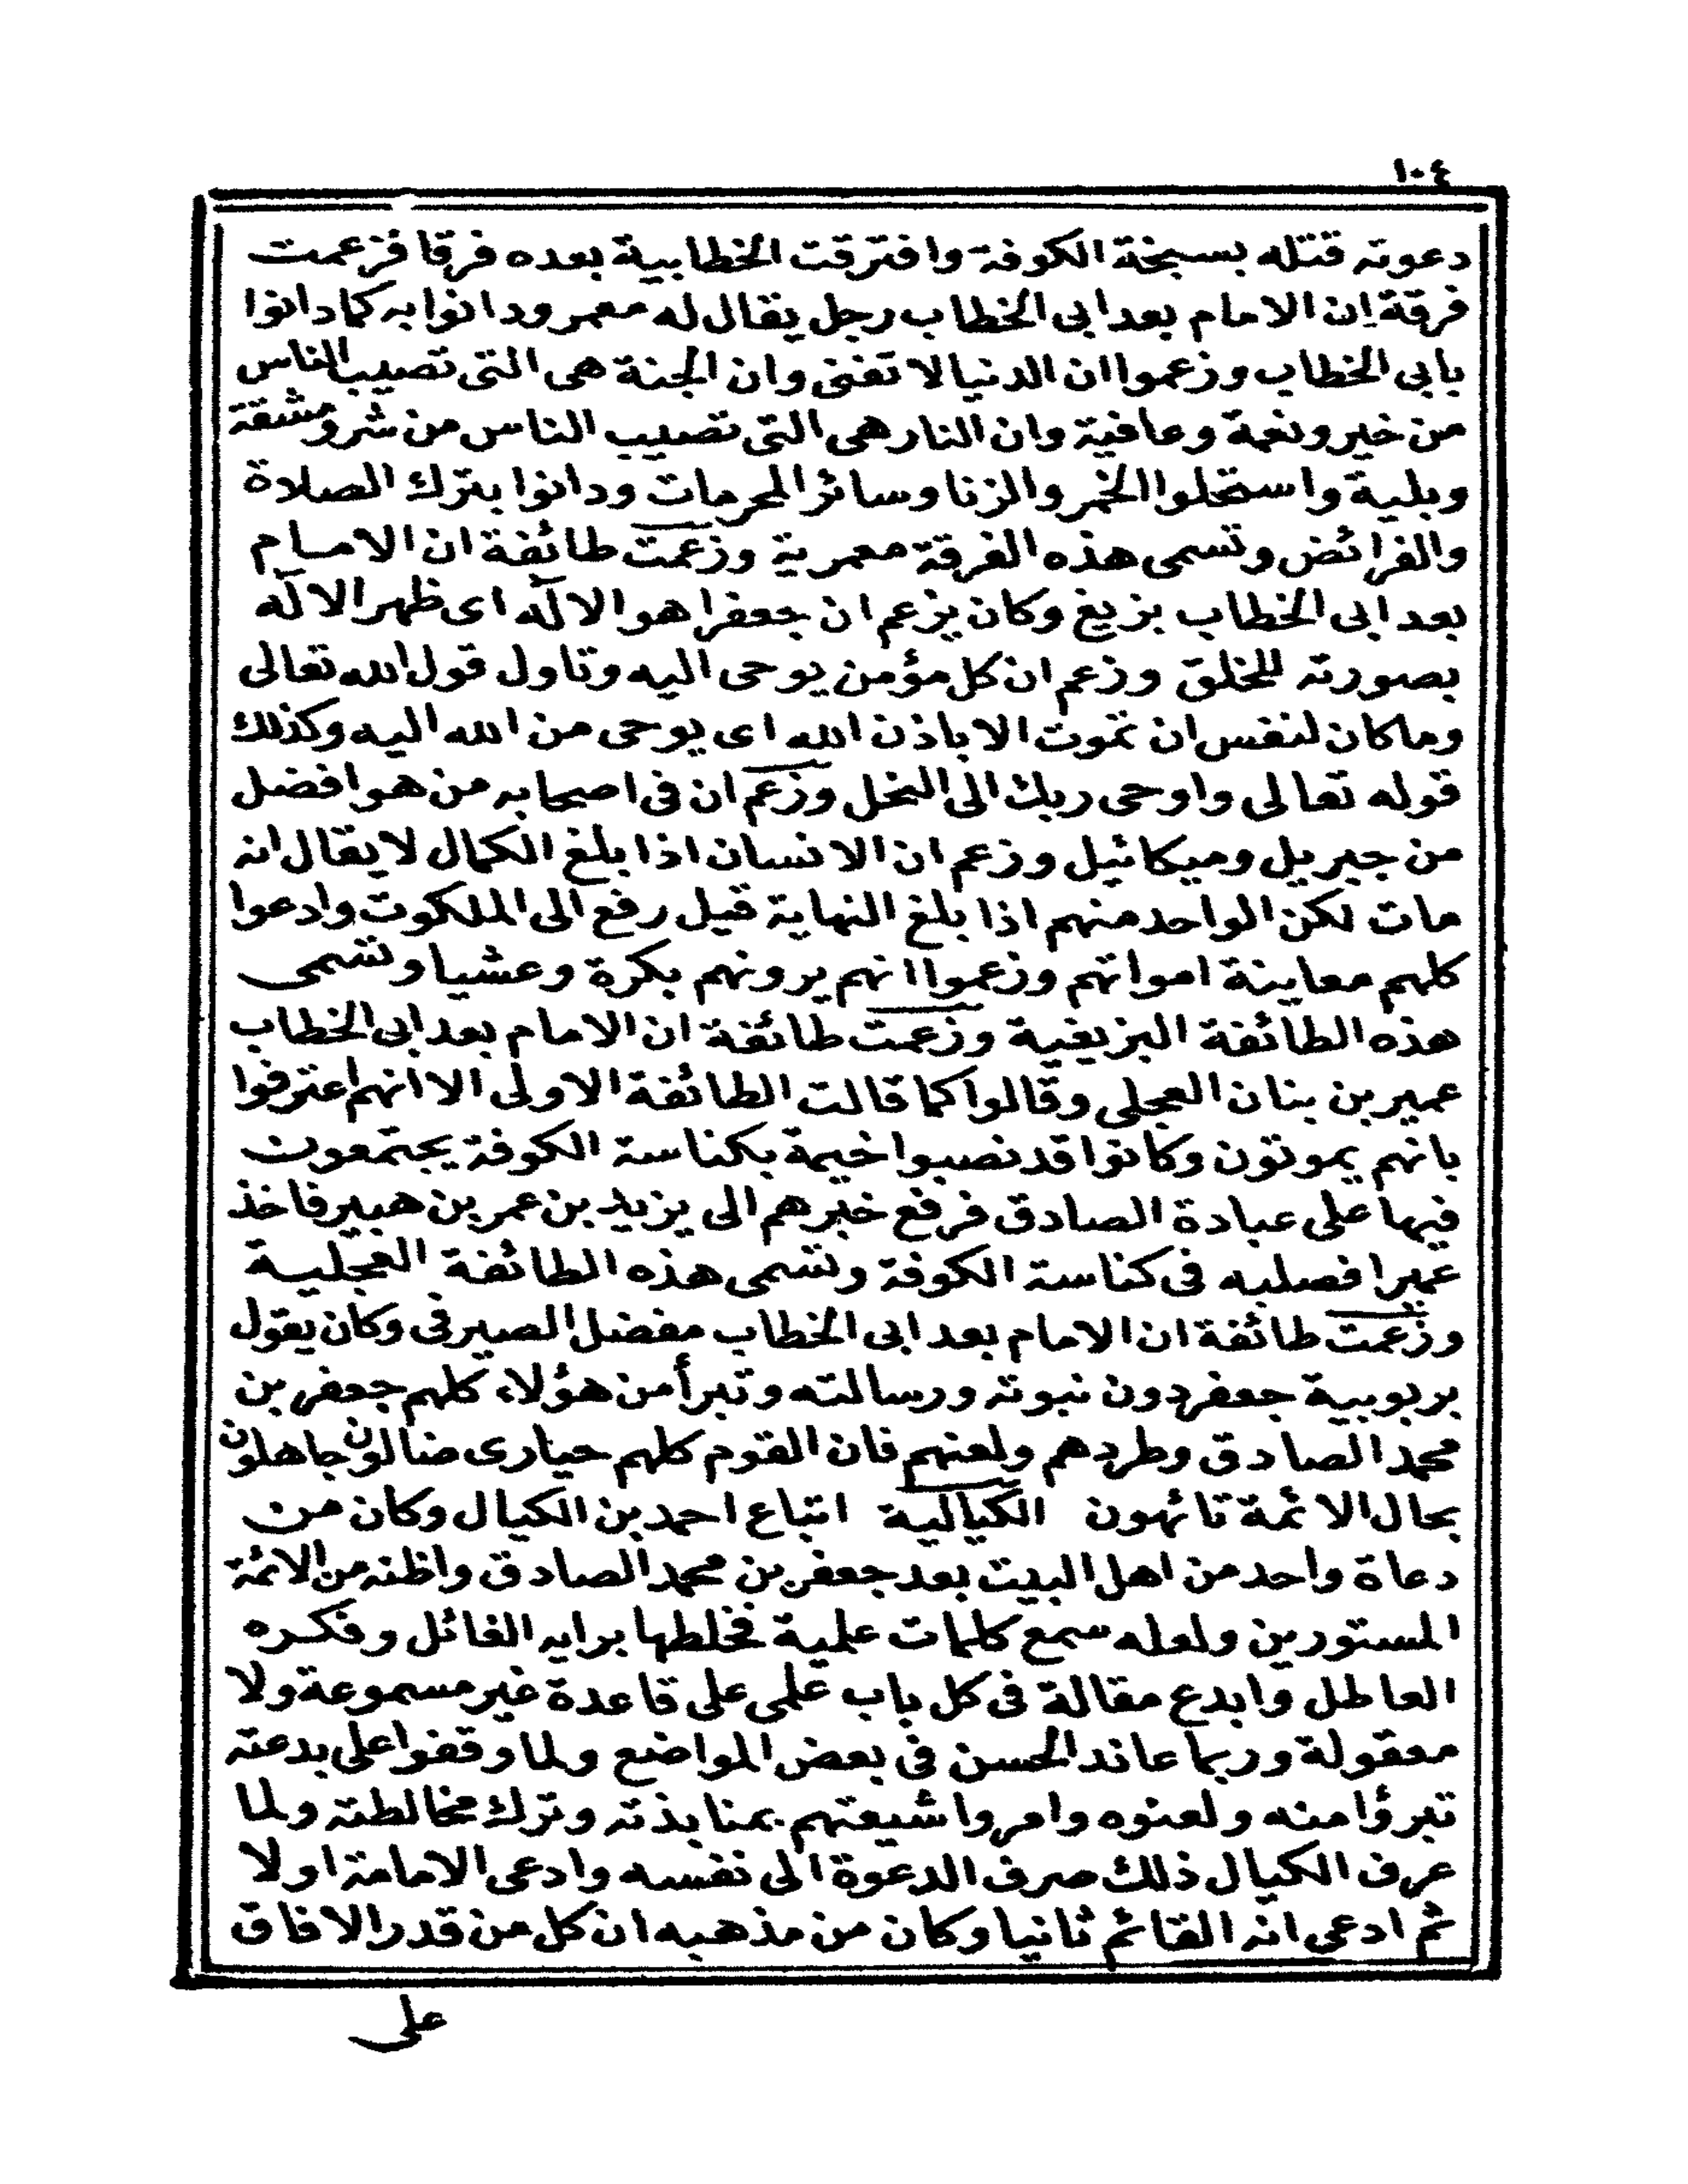 ١٠٤
دعوته قتله بسبخة الكوفة وافترقت الخطابية بعده فرقا فزعمت
فرقة إن الامام بعد ابى الخطاب رجل يقال له معمر ودانوا به كما دانوا
بابى الخطاب وزعموا ان الدنيا لا تفنى وان الجنة هى التى تصيب الناس
من خير ونعمة وعافية وان النار هى التى تصيب الناس من شر ومشقة
وبلية واستحلوا الخمر والزنا وسائر المحرمات ودانوا بترك الصلاة
والفرائض وتسمى هذه الفرقة معمرية وزعمت طائفة ان الامام
بعد ابى الخطاب بزيغ وكان يزعم ان جعفرا هو الاله اى ظهر الاله
بصورته للخلق وزعم ان كل مؤمن يوحى اليه وتاول قول الله تعالى
وما كان لنفس ان تموت الا باذن الله اى يوحى من الله اليه وكذلك
قوله تعالى واوحى ربك الى النحل وزعم ان فى اصحابه من هو افضل
من جبريل وميكائيل وزعم ان الانسان اذا بلغ الكمال لا يقال انه
مات لكن الواحد منهم اذا بلغ النهاية قيل رفع الى الملكوت وادعوا
كلهم معاينة امواتهم وزعموا انهم يرونهم بكرة وعشيا وتسمى
هذه الطائفة البزيغية وزعمت طائفة ان الامام بعد ابى الخطاب
عمير بن بنان العجلى وقالوا كما قالت الطائفة الاولى الا انهم اعترفوا
بانهم يموتون وكانوا قد نصبوا خيمة بكناسة الكوفة يجتمعون
فيها على عبادة الصادق فرفع خبرهم الى يزيد بن عمر بن هبير فاخذ
عميرا فصلبه فى كناسة الكوفة وتسمى هذه الطائفة العجلية
وزعمت طائفة ان الامام بعد ابى الخطاب مفضل الصيرفى وكان يقول
بربوبية جعفر دون نبوته ورسالته وتبرأ من هؤلاء كلهم جعفر بن
محمد الصادق وطردهم ولعنهم فان القوم كلهم حيارى ضالون جاهلون
بحال الائمة تائهون الكيالية اتباع احمد بن الكيال وكان من
دعاة واحد من اهل البيت بعد جعفر بن محمد الصادق واظنه من الائمة
المستورين ولعله سمع كلمات علمية فخلطها برايه الفائل وفكره
العاطل وابدع مقالة فى كل باب علمى على قاعدة غير مسموعة ولا
معقولة وربما عاند الحسن فى بعض المواضع ولما وقفوا على بدعته
تبرؤا منه ولعنوه وامروا شيعتهم بمنابذته وترك مخالطته ولما
عرف الكيال ذلك صرف الدعوة الى نفسه وادعى الامامة اولا
ثم ادعى انه القائم ثانيا وكان من مذهبه ان كل من قدر الافاق
على